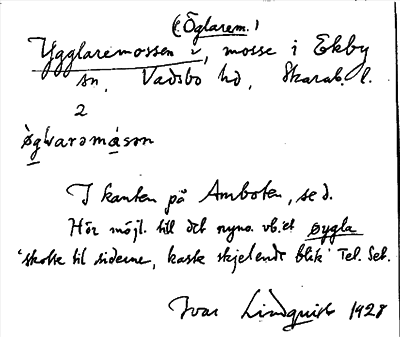 (Öglarem.)
Ygglaremossen v, mosse i Ekby
sn, Vadsbo hd, Skarab. l.
2
ògwarəmásən
I kanten på Amboten, se d.
Hör möjl. till det nyno. vb.et øygla
'skotte til siderne, kaste skjelende blik' Tel. Set.
Ivar Lindquist 1928